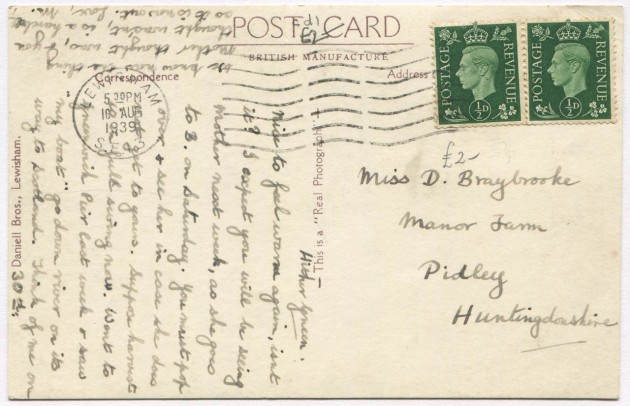 POST CARD
Ed1
£2-
BRITISH MANUFACTURE
Correspondence
Address
POSTAGE REVENUE
½D
POSTAGE REVENUE
½D
LEWISHAM
5 30PM
16 AUG
1939
S.E.13
£2-
Miss D. Braybrooke
Manor Farm
Pidley
Huntingdonshire
This is a "Real Photograph"
Daniell Bros., Lewisham.
Hither Green.
Nice to feel warm again, isn't
it? I expect you will be seeing
Mother next week, as she goes
to B. on Saturday. You must pop
over & see her in case she does
not get to yours. Suppose harvest
full swing now. Went to
Greenwich Pier last week & saw
"my boat" go down river on its
way to Scotland. Think of me on
30th.
We know now the thing
Mother thought was, & you
thought wasn't, is a hardy
so it is now out. Love, M.